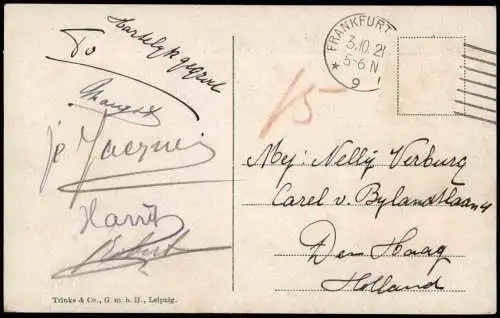 Hartelijk gegroet
To
Margot
je Jacques
Harry
Robert
Trinks & Co., G. m. b. H., Leipzig.
FRANKFURT
3.10.21
5-6 N
* 9
15
Mej: Nelly Verburg
Carel v. Bylandtlaan 4
Den Haag
Holland